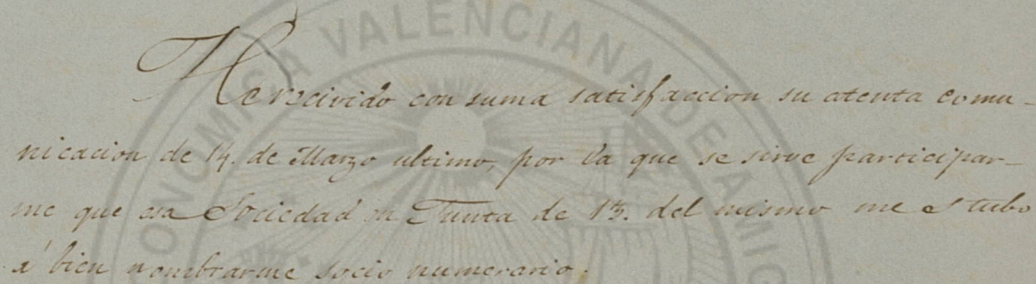 He recivido con suma satisfaccion su atenta comu-
nicacion de 14. de Marzo ultimo, por la que se sirve participar-
me que esa Sociedad en Junta de 13. del mismo me tubo
á bien nombrarme socio numerario.
ONOMICA VALENCIANA DE AMIG